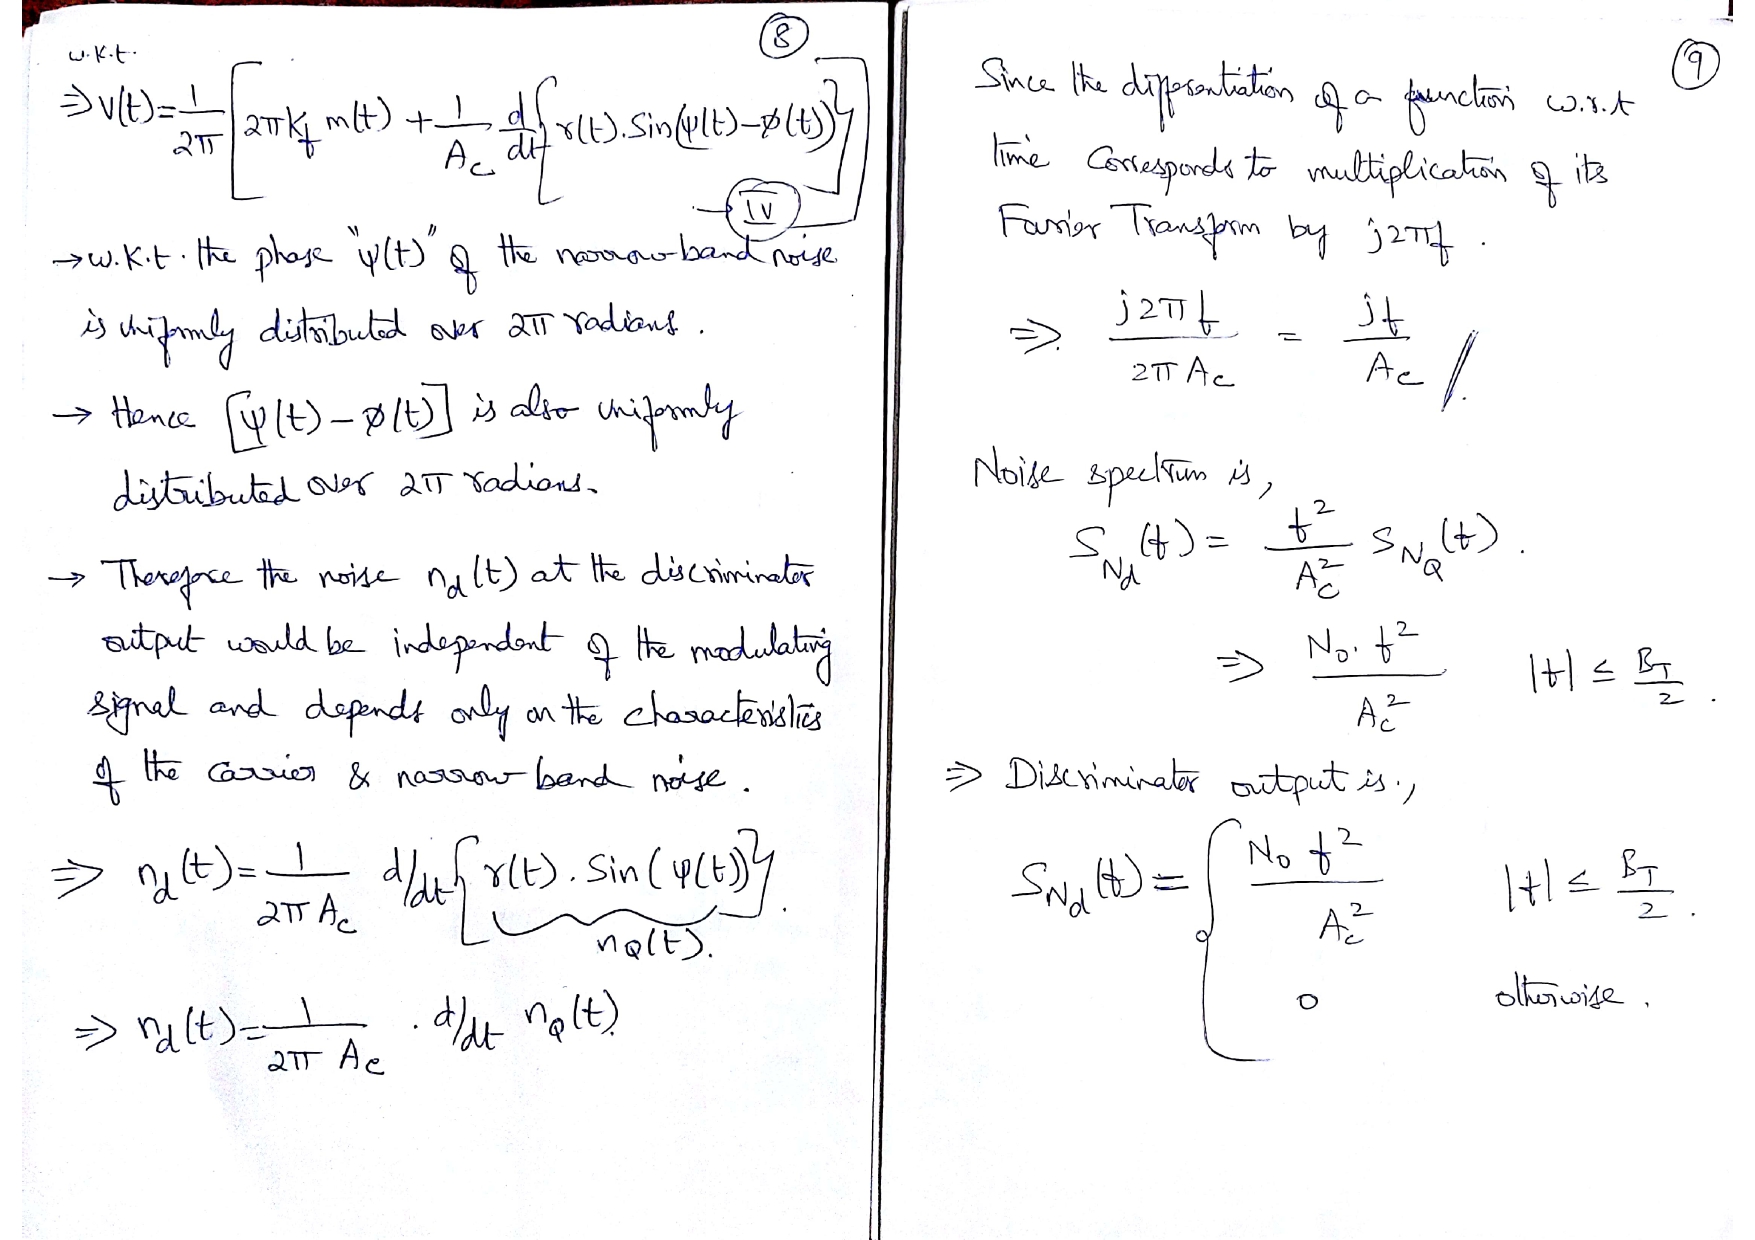 8
w.k.t.
⇒ v(t) = 1/2π [2πKf m(t) + 1/Ac d/dt {r(t). Sin(ψ(t) – ø(t))}]
→ IV
→ w.k.t. the phase "ψ(t)" of the narrow-band noise
is uniformly distributed over 2π radians.
→ Hence [ψ(t) – ø(t)] is also uniformly
distributed over 2π radians.
→ Therefore the noise nd(t) at the discriminator
output would be independent of the modulating
signal and depends only on the characteristics
of the carrier & narrow band noise.
⇒ nd(t) = 1/2π Ac d/dt {r(t). Sin(ψ(t))}.
nQ(t).
⇒ nd(t) = 1/2π Ac . d/dt nQ(t)
9
Since the differentiation of a function w.r.t
time corresponds to multiplication of its
Fourier Transform by j2πf.
⇒ j2πf/2πAc = jf/Ac //.
Noise spectrum is,
SNd(f) = f²/Ac² SNQ(f).
⇒ No. f²/Ac² |f| ≤ BT/2.
⇒ Discriminator output is.,
SNd(f) = { No f²/Ac² |f| ≤ BT/2.
0 otherwise.